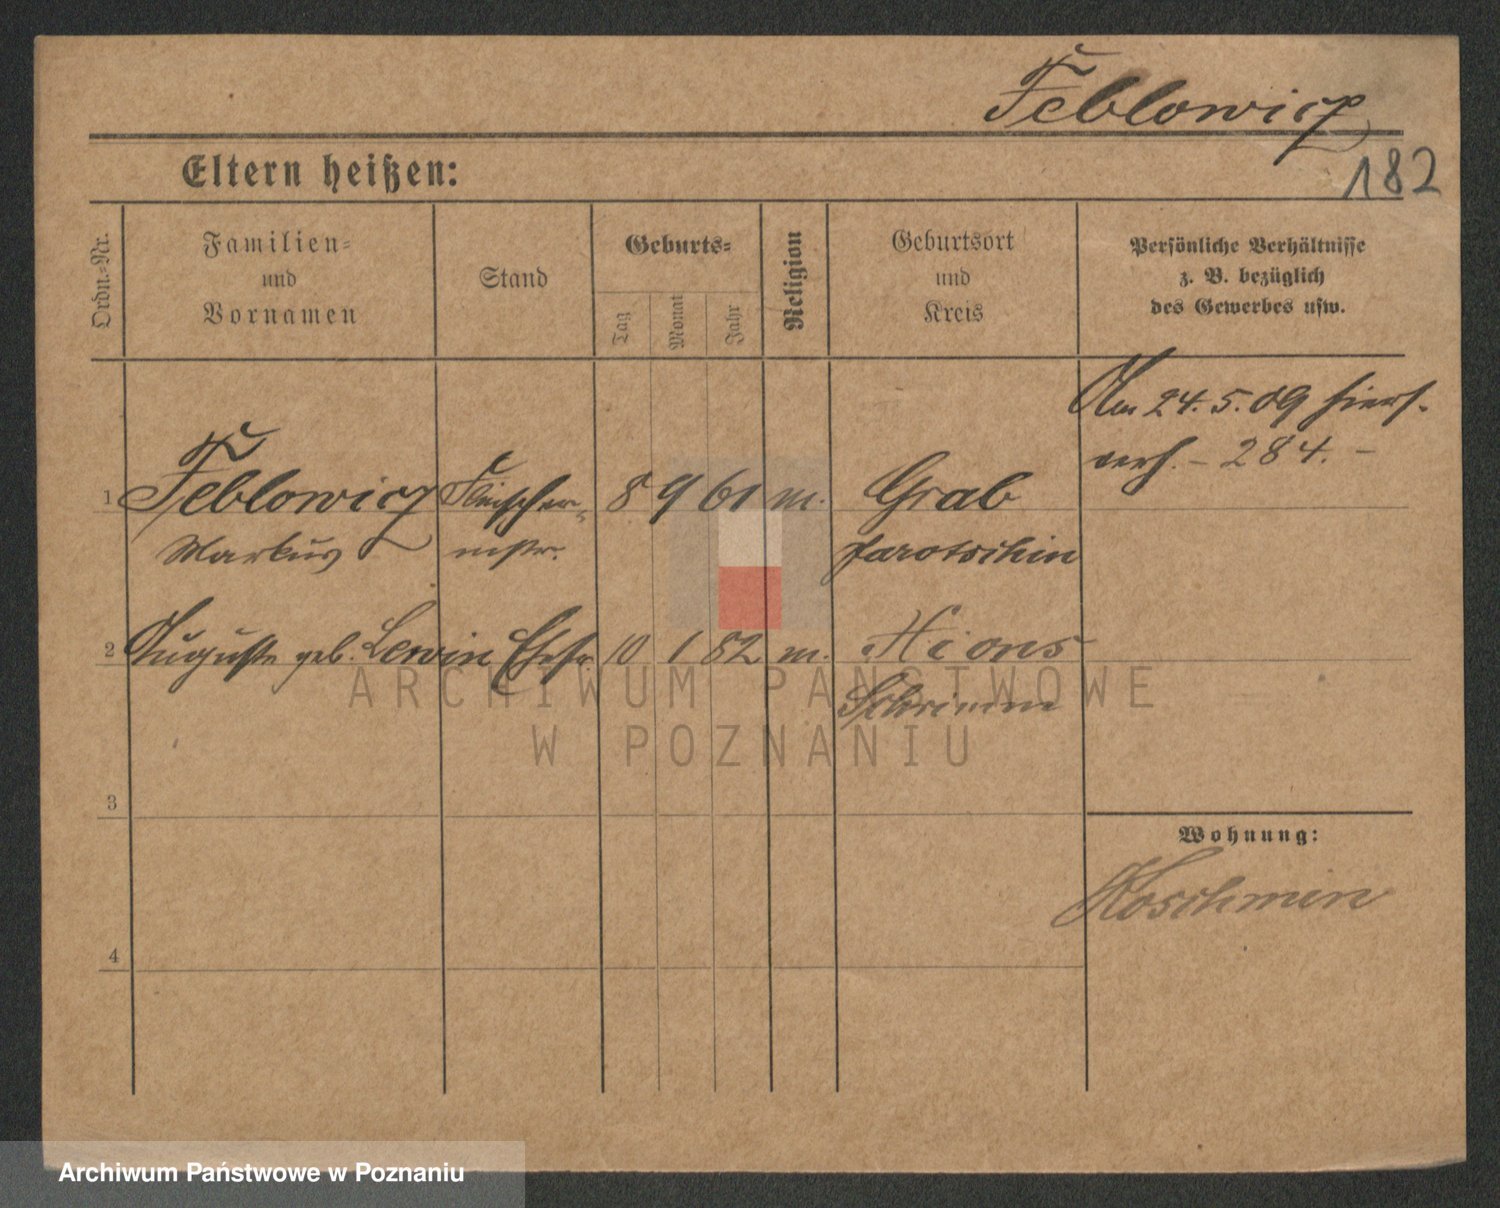 Feblowicz
182
Eltern heißen:
Ordn.-Nr.
Familien-
und
Vornamen
Stand
Geburts-
Tag
Monat
Jahr
Religion
Geburtsort
und
Kreis
Persönliche Verhältnisse
z. B. bezüglich
des Gewerbes usw.
Am 24.5.09 hiers.
verh. – 284. –
1 Feblowicz Fleischer- 8 9 61 m. Grab
Markus mstr. Jarotschin
2 Auguste geb. Lewin Ehefr. 10 1 82 m. Xions
Schrimm
ARCHIWUM PAŃSTWOWE
W POZNANIU
3
Wohnung:
Koschmin
4
Archiwum Państwowe w Poznaniu